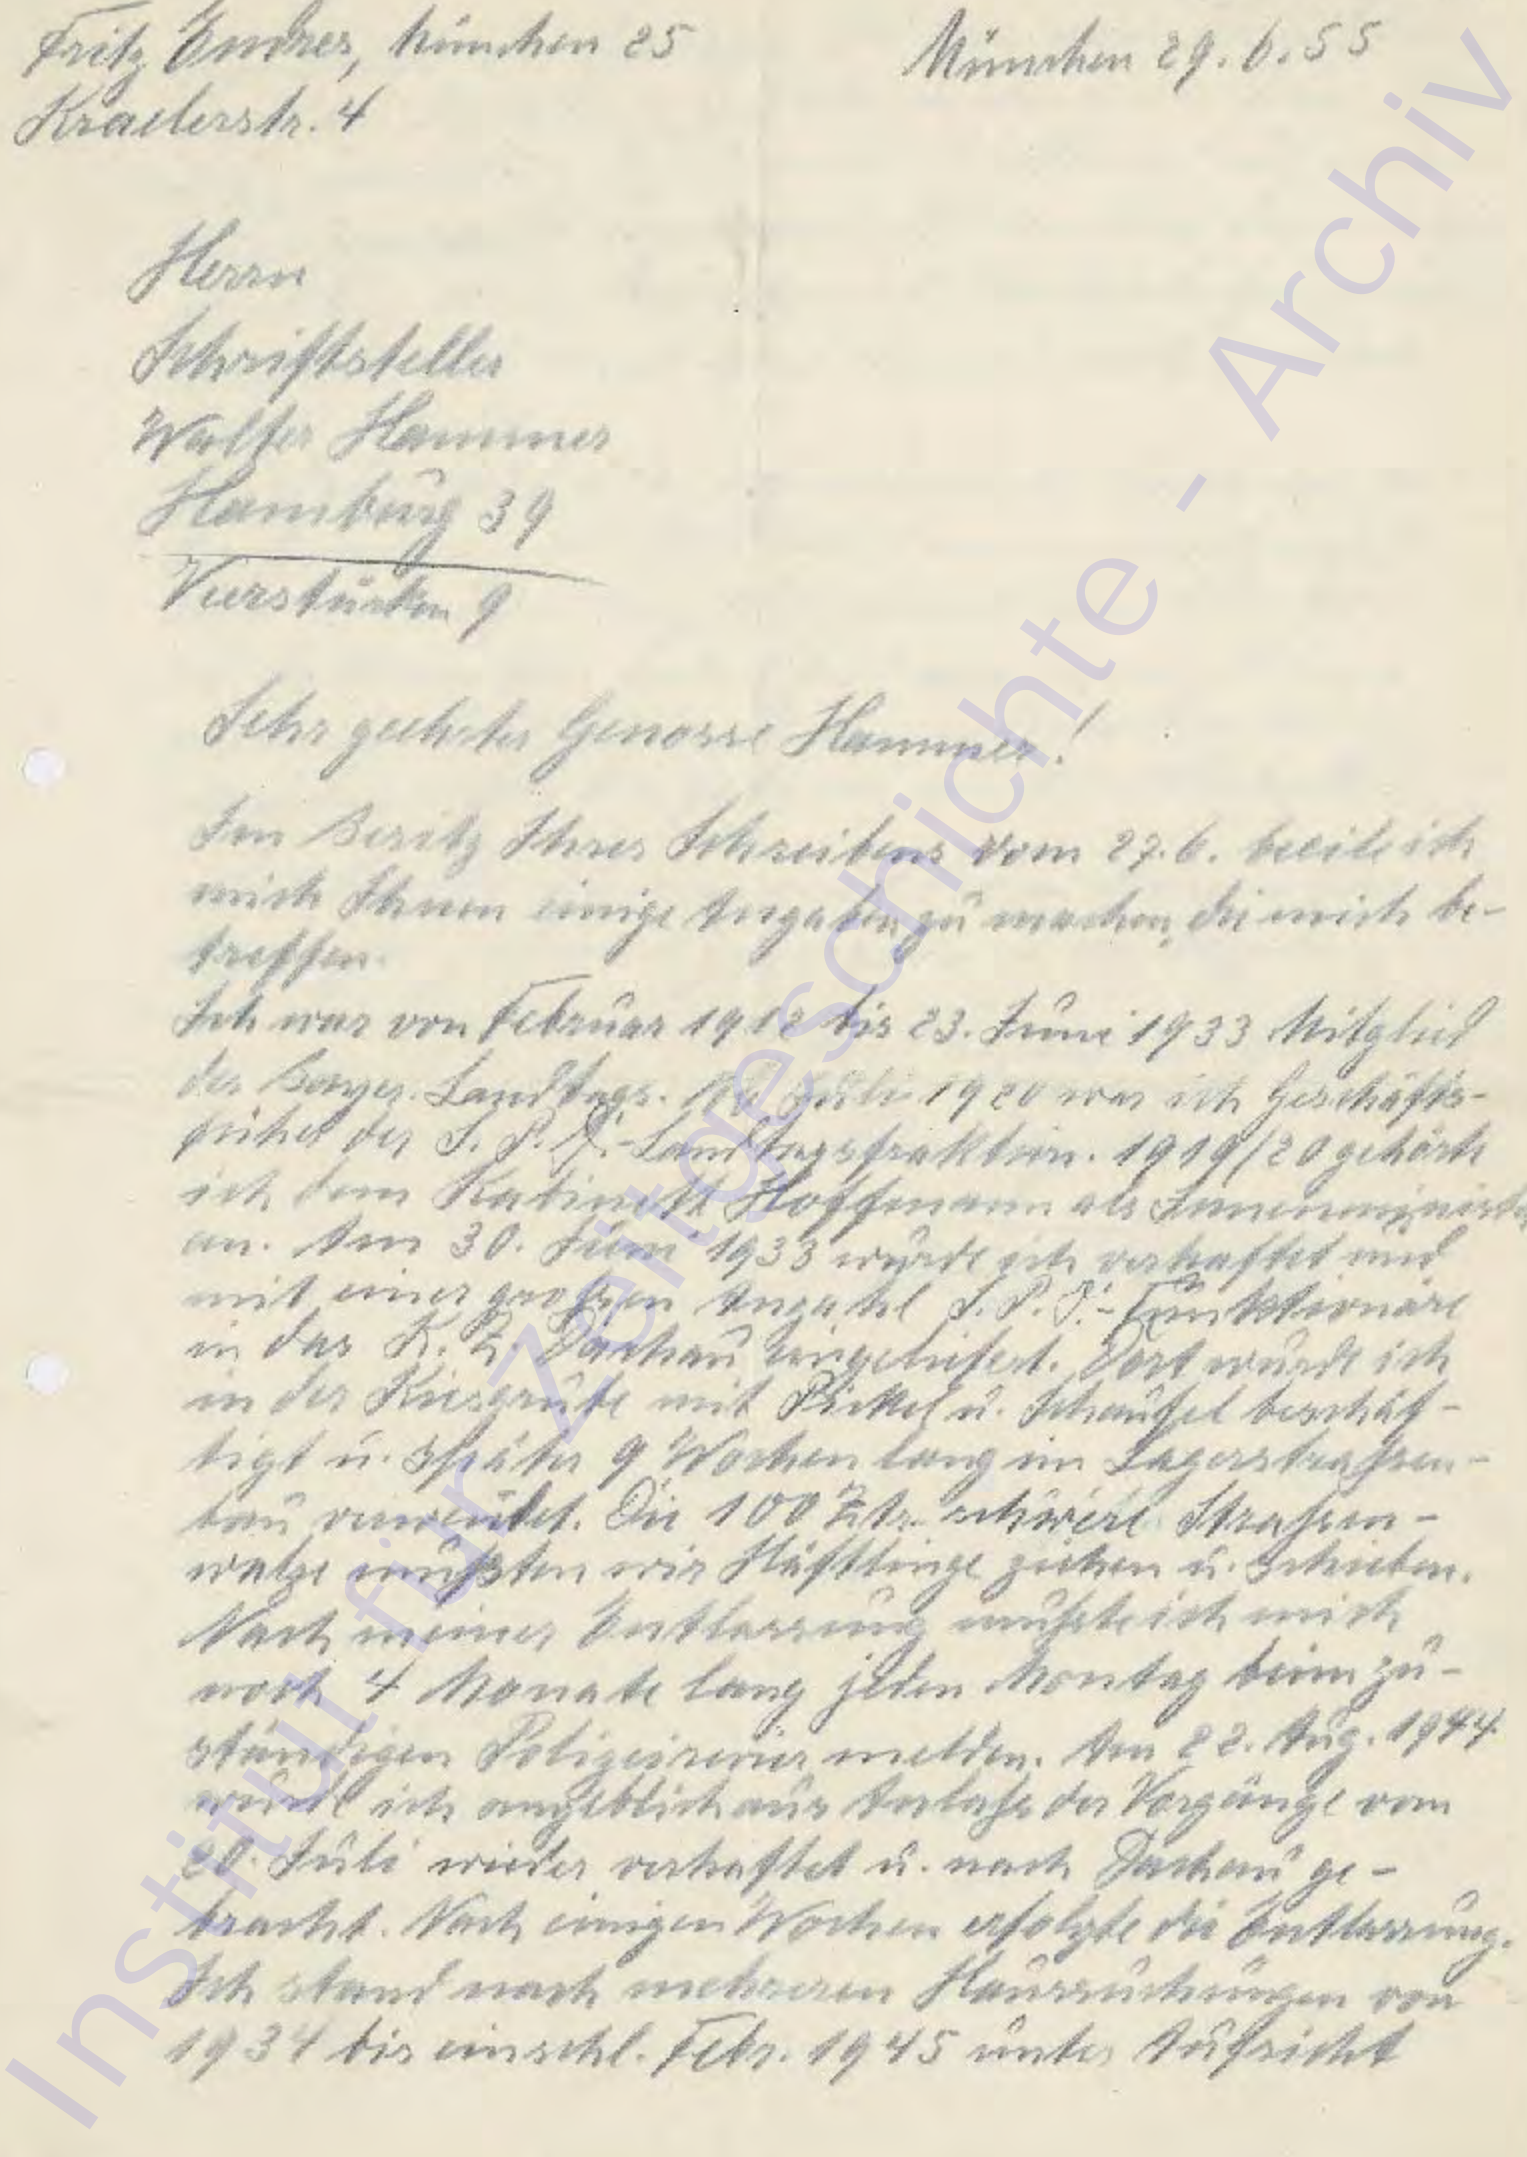 Fritz Endres, München 25
München 29.6.55
Kraelerstr. 4
Herrn
Schriftsteller
Walter Hammer
Hamburg 39
Vierstücken 9
Sehr geehrter Genosse Hammer!
Im Besitz Ihres Schreibens vom 27.6. beeile ich
mich Ihnen einige Angaben zu machen, die mich be-
treffen.
Ich war von Februar 1912 bis 23. Juni 1933 Mitglied
des Bayer. Landtags. Ab Juli 1920 war ich Geschäfts-
führer der S.P.D.-Landtagsfraktion. 1919/20 gehörte
ich dem Kabinett Hoffmann als Innenminister
an. Am 30. Juni 1933 wurde ich verhaftet und
mit einer großen Anzahl S.P.D.-Funktionäre
in das K.Z. Dachau eingeliefert. Dort wurde ich
in der Kiesgrube mit Pickel u. Schaufel beschäf-
tigt u. später 9 Wochen lang im Lagerstraßen-
bau verwendet. Die 100 Ztr. schwere Straßen-
walze mußten wir Häftlinge ziehen u. schieben.
Nach meiner Entlassung mußte ich mich
noch 4 Monate lang jeden Montag beim zu-
ständigen Polizeirevier melden. Am 22. Aug. 1944
wurde ich angeblich aus Anlaß der Vorgänge vom
20. Juli wieder verhaftet u. nach Dachau ge-
bracht. Nach einigen Wochen erfolgte die Entlassung.
Ich stand nach mehreren Haussuchungen von
1934 bis einschl. Febr. 1945 unter Aufsicht
Institut für Zeitgeschichte - Archiv